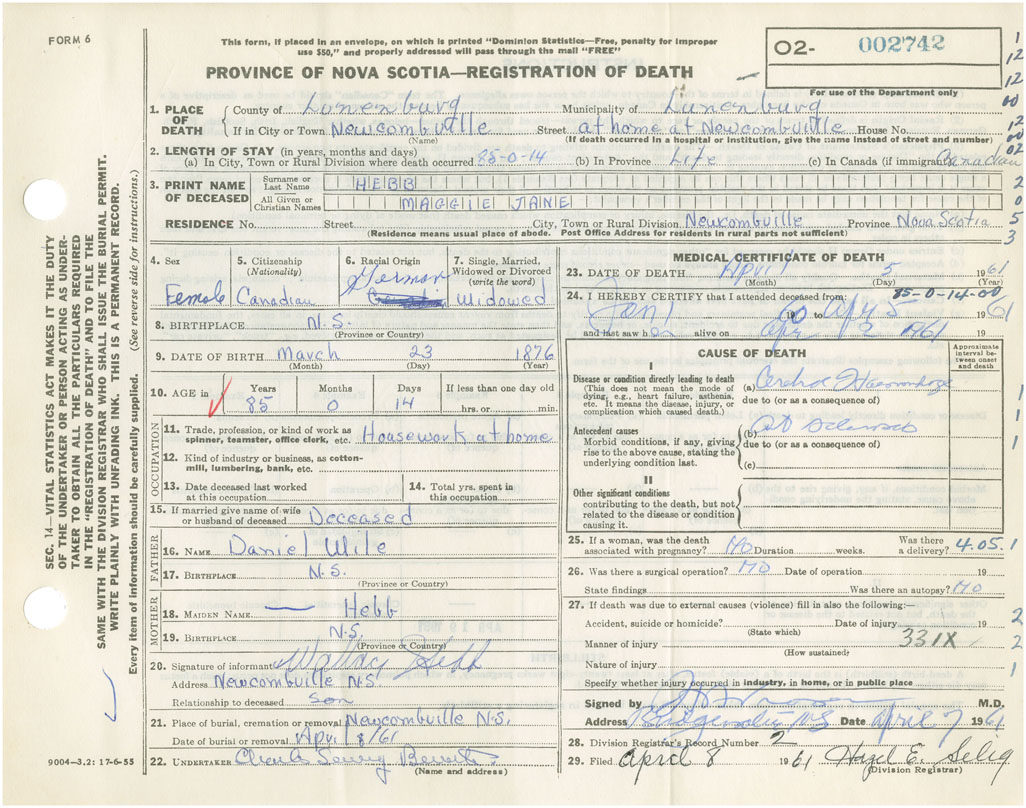 FORM 6
This form, if placed in an envelope, on which is printed "Dominion Statistics—Free, penalty for improper
use $50," and properly addressed will pass through the mail "FREE"
PROVINCE OF NOVA SCOTIA—REGISTRATION OF DEATH
O2- 002742
For use of the Department only
1. PLACE OF DEATH { County of Lunenburg Municipality of Lunenburg
If in City or Town Newcombville Street at home at Newcombville House No.
(Name) (If death occurred in a hospital or institution, give the name instead of street and number)
2. LENGTH OF STAY (in years, months and days)
(a) In City, Town or Rural Division where death occurred 85-0-14 (b) In Province Life (c) In Canada (if immigrant) Canadian
3. PRINT NAME OF DECEASED
Surname or Last Name HEBB
All Given or Christian Names MAGGIE JANE
RESIDENCE No. Street City, Town or Rural Division Newcombville Province Nova Scotia
(Residence means usual place of abode. Post Office Address for residents in rural parts not sufficient)
4. Sex Female
5. Citizenship (Nationality) Canadian
6. Racial Origin German
7. Single, Married, Widowed or Divorced (write the word) Widowed
8. BIRTHPLACE N.S.
(Province or Country)
9. DATE OF BIRTH March 23 1876
(Month) (Day) (Year)
10. AGE in Years Months Days If less than one day old
85 0 14 hrs. or min.
OCCUPATION
11. Trade, profession, or kind of work as
spinner, teamster, office clerk, etc. Housework at home
12. Kind of industry or business, as cotton-
mill, lumbering, bank, etc.
13. Date deceased last worked
at this occupation
14. Total yrs. spent in
this occupation
15. If married give name of wife
or husband of deceased Deceased
FATHER
16. NAME Daniel Wile
17. BIRTHPLACE N.S.
(Province or Country)
MOTHER
18. MAIDEN NAME — Hebb
19. BIRTHPLACE N.S.
(Province or Country)
20. Signature of informant Hebb
Address Newcombville N.S.
Relationship to deceased son
21. Place of burial, cremation or removal Newcombville N.S.
Date of burial or removal April 8/61
22. UNDERTAKER
(Name and address)
9004-3,2: 17-6-55
MEDICAL CERTIFICATE OF DEATH
23. DATE OF DEATH April 5 1961
(Month) (Day) (Year)
85-0-14-00
24. I HEREBY CERTIFY that I attended deceased from:
Jan 1 1960 to Apr 5 1961
and last saw h alive on Apr 2 1961
CAUSE OF DEATH
Approximate interval between onset and death
I
Disease or condition directly leading to death
(This does not mean the mode of
dying, e.g., heart failure, asthenia,
etc. It means the disease, injury, or
complication which caused death.)
(a)
due to (or as a consequence of)
Antecedent causes
Morbid conditions, if any, giving
rise to the above cause, stating the
underlying condition last.
(b)
due to (or as a consequence of)
(c)
II
Other significant conditions
contributing to the death, but not
related to the disease or condition
causing it.
25. If a woman, was the death
associated with pregnancy? No Duration weeks. Was there
a delivery? 4.05.
26. Was there a surgical operation? No Date of operation 19
State findings Was there an autopsy? No
27. If death was due to external causes (violence) fill in also the following:—
Accident, suicide or homicide? Date of injury 19
(State which)
Manner of injury 331X
(How sustained)
Nature of injury
Specify whether injury occurred in industry, in home, or in public place
Signed by M.D.
Address Bridgewater N.S. Date April 7 1961
28. Division Registrar's Record Number 2
29. Filed April 8 1961 Hazel E. Selig
(Division Registrar)
SEC. 14—VITAL STATISTICS ACT MAKES IT THE DUTY
OF THE UNDERTAKER OR PERSON ACTING AS UNDER-
TAKER TO OBTAIN ALL THE PARTICULARS REQUIRED
IN THE "REGISTRATION OF DEATH" AND TO FILE THE
SAME WITH THE DIVISION REGISTRAR WHO SHALL ISSUE THE BURIAL PERMIT.
WRITE PLAINLY WITH UNFADING INK. THIS IS A PERMANENT RECORD.
Every item of information should be carefully supplied. (See reverse side for instructions.)